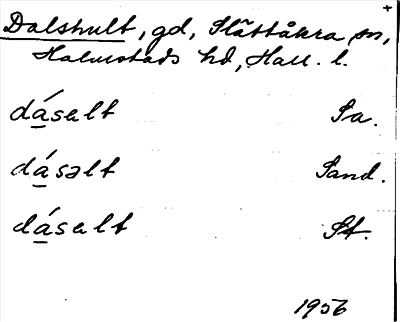 Dalshult, gd, Slättåkra sn,
Halmstads hd, Hall. l.
dásalt Sa.
dásəlt Sand.
dásalt St.
1956